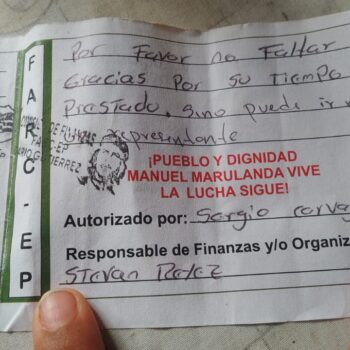 FARC-EP
Por Favor no Faltar
Gracias Por su Tiempo
Prestado, sino puede ir
representante
¡PUEBLO Y DIGNIDAD
MANUEL MARULANDA VIVE
LA LUCHA SIGUE!
Autorizado por: Sergio
Responsable de Finanzas y/o Organiz
Stevan